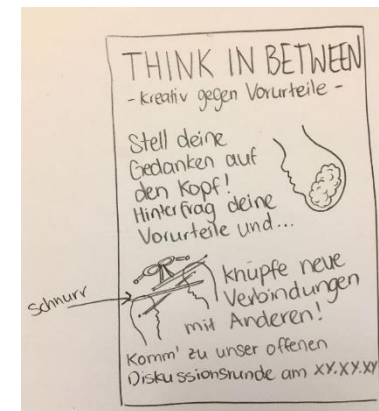 THINK IN BETWEEN
- kreativ gegen Vorurteile -
Stell deine
Gedanken auf
den Kopf!
Hinterfrag deine
Vorurteile und...
knüpfe neue
Verbindungen
mit Anderen!
Schnurr
Komm' zu unser offenen
Diskussionsrunde am XY.XY.XY